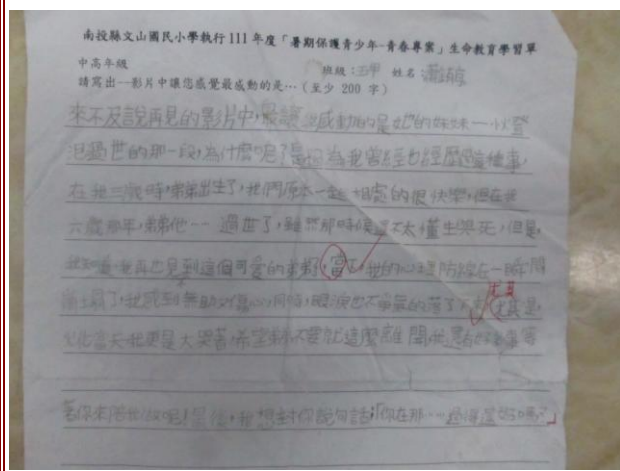 南投縣文山國民小學執行111年度「暑期保護青少年-青春專案」生命教育學習單
中高年級 班級:五甲 姓名:蕭
請寫出一影片中讓您感覺最感動的是…(至少 200 字)
來不及說再見的影片中,最讓我感動的是她的妹妹——小火登
過世的那一段,為什麼呢?是因為我曾經也經歷過這種事,
在我三歲時,弟弟出生了,我們原本一起相處的很快樂,但在我
六歲那年,弟弟他-- 過世了,雖然那時候還不太懂生與死,但是,
我知道,我再也見到這個可愛的弟弟,當下,我的心理防線在一瞬間
崩土塌了,我感到無助又傷心,同時,眼淚也不爭氣的落了下來,尤其是,
尤其
火化當天,我更是大哭著,希望弟弟不要就這麼離開,我還有好多事等
著你來陪我做呢!最後,我想對你說句話:「你在那…過得還好嗎?」